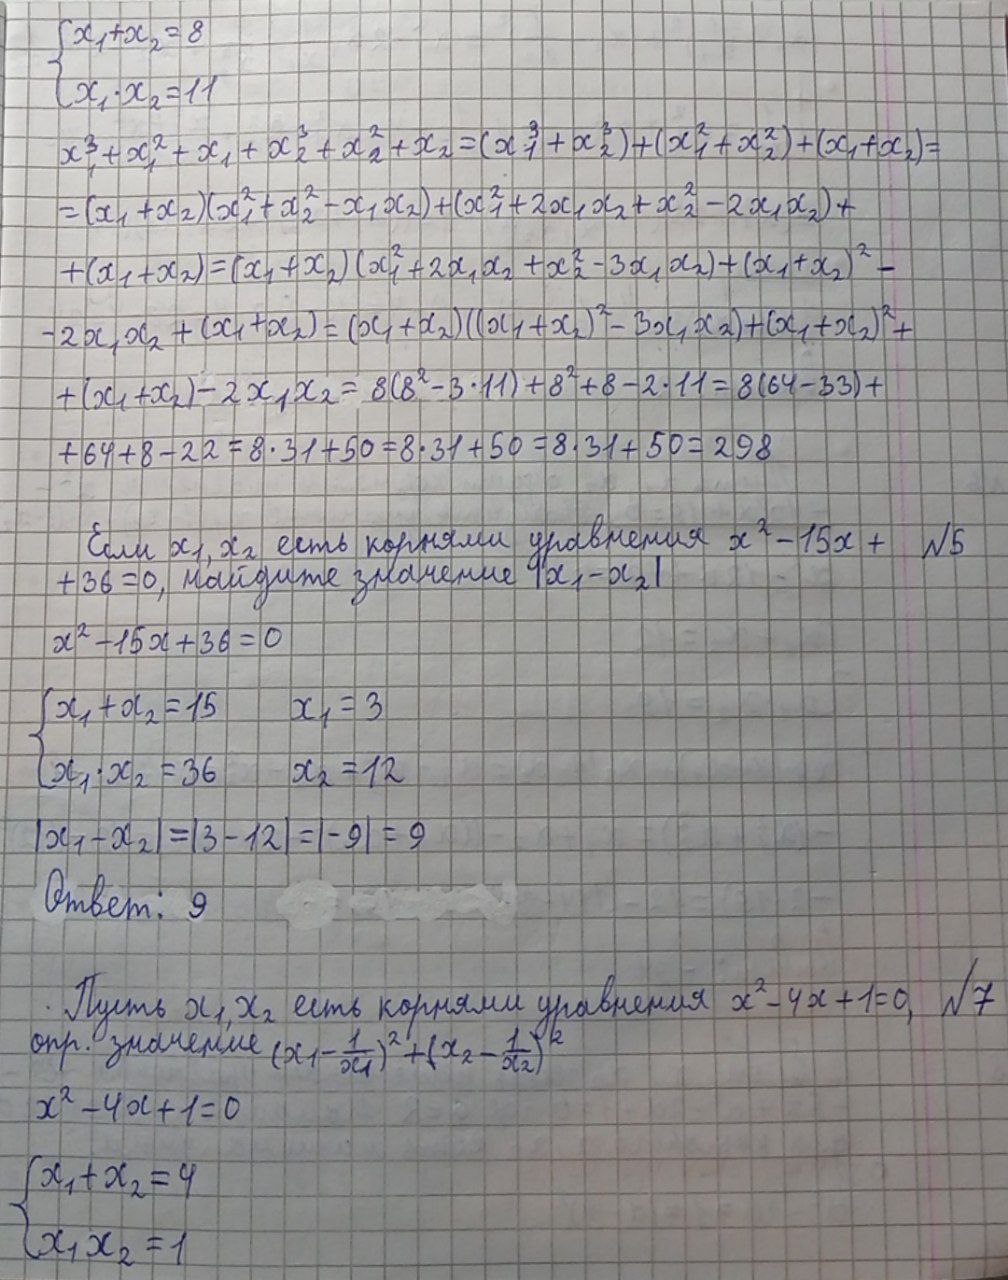 {x₁+x₂=8
{x₁·x₂=11
x₁³+x₁²+x₁+x₂³+x₂²+x₂=(x₁³+x₂³)+(x₁²+x₂²)+(x₁+x₂)=
=(x₁+x₂)(x₁²+x₂²-x₁x₂)+(x₁²+2x₁x₂+x₂²-2x₁x₂)+
+(x₁+x₂)=(x₁+x₂)(x₁²+2x₁x₂+x₂²-3x₁x₂)+(x₁+x₂)²-
-2x₁x₂+(x₁+x₂)=(x₁+x₂)((x₁+x₂)²-3x₁x₂)+(x₁+x₂)²+
+(x₁+x₂)-2x₁x₂=8(8²-3·11)+8²+8-2·11=8(64-33)+
+64+8-22=8·31+50=8·31+50=8·31+50=298
Если x₁,x₂ есть корнями уравнения x²-15x+ №5
+36=0, найдите значение |x₁-x₂|
x²-15x+36=0
{x₁+x₂=15 x₁=3
{x₁·x₂=36 x₂=12
|x₁-x₂|=|3-12|=|-9|=9
Ответ: 9
Пусть x₁,x₂ есть корнями уравнения x²-4x+1=0, №7
опр. значение (x₁-1/x₁)²+(x₂-1/x₂)²
x²-4x+1=0
{x₁+x₂=4
{x₁x₂=1